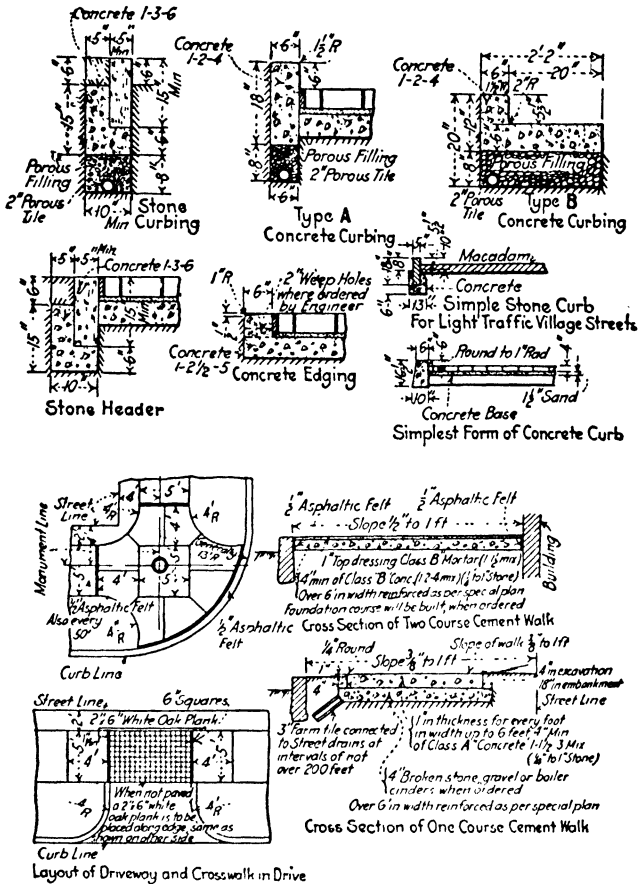 Concrete 1-3-6
5" 5"
Min
6"
15"
6"
15"
Min
6"
8"
Porous
Filling
2" Porous
Tile
10"
Min
Stone
Curbing
Concrete
1-2-4
6"
1½"R
6"
18"
8"
6"
Porous Filling
2" Porous Tile
Type A
Concrete Curbing
Concrete
1-2-4
2'-2"
6"
20"
2"R
20"
12"
8"
Porous Filling
2" Porous
Tile
Type B
Concrete Curbing
5" 5"
Min
Concrete 1-3-6
6"
15"
15"
Min
6"
10"
Stone Header
1"R
6"
2" Weep Holes
where ordered
by Engineer
Concrete
1-2½-5
Concrete Edging
Macadam
18"
6"
13"
Concrete
Simple Stone Curb
For Light Traffic Village Streets
6"
6"
Round to 1" Rad
4"
10"
1½" Sand
Concrete Base
Simplest Form of Concrete Curb
Street
Line
Monument Line
4'
5'
4'R
4'R
4'
5'
4'
5'
Generally
13'R
½" Asphaltic Felt
Also every
50'
4'R
½" Asphaltic
Felt
Curb Line
½" Asphaltic Felt
½" Asphaltic Felt
Slope ½" to 1 ft
Building
1" Top dressing Class B Mortar (1-1½ mix)
4" min of Class "B" Conc. (1-2-4 mix) (¼" to 1" Stone)
Over 6' in width reinforced as per special plan
Foundation course will be built, when ordered
Cross Section of Two Course Cement Walk
¼" Round
Slope 3/8" to 1 ft
Slope of walk 3/8" to 1 ft
4"
4" in excavation
18" in embankment
Street Line
3" Farm tile connected
to Street drains at
intervals of not
over 200 feet
1" in thickness for every foot
in width up to 6 feet 4" Min
of Class A "Concrete" 1-1½-3 Mix
(¼" to 1" Stone)
4" Broken stone, gravel or boiler
cinders when ordered
Over 6' in width reinforced as per special plan
Cross Section of One Course Cement Walk
Street Line
6" Squares
2' 2"x6" White Oak Plank
5'
5'
4'R
4'R
When not paved
a 2"x6" white
oak plank is to be
placed along edge, same as
shown on other side
Curb Line
Layout of Driveway and Crosswalk in Drive